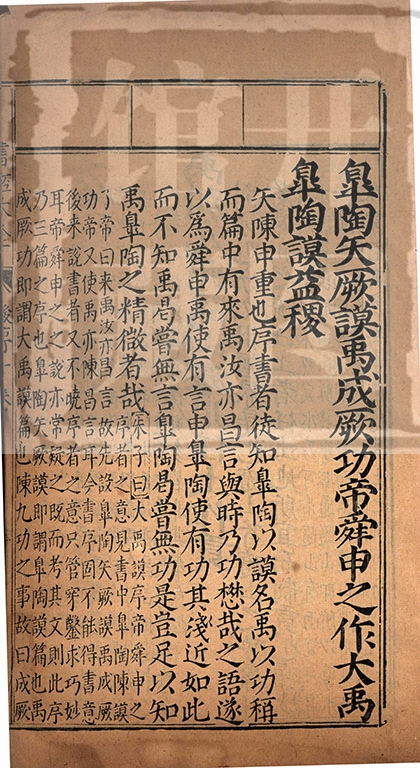 皐陶矢厥謨禹成厥功帝舜申之作大禹
皐陶謨益稷
矢陳申重也序書者徒知皐陶以謨名禹以功稱
而篇中有來禹汝亦昌言與時乃功懋哉之語遂
以爲舜申禹使有言申皐陶使有功其淺近如此
而不知禹曷嘗無言皐陶曷嘗無功是豈足以知
禹皐陶之精微者哉朱子曰大禹謨序帝舜申之
序者之意見書中皐陶陳謨
了帝曰來禹汝亦昌言故先說皐陶矢厥謨禹成厥
功帝又使禹亦陳昌言耳今書序固不能得書意
後來說書者又不曉序者之意只管穿鑿求巧妙
耳帝舜申之之說亦常疑之既而考其文則此序
乃三篇之序也皐陶矢厥謨即謂皐陶謨篇也禹
成厥功即謂大禹謨篇也陳九功之事故曰成厥